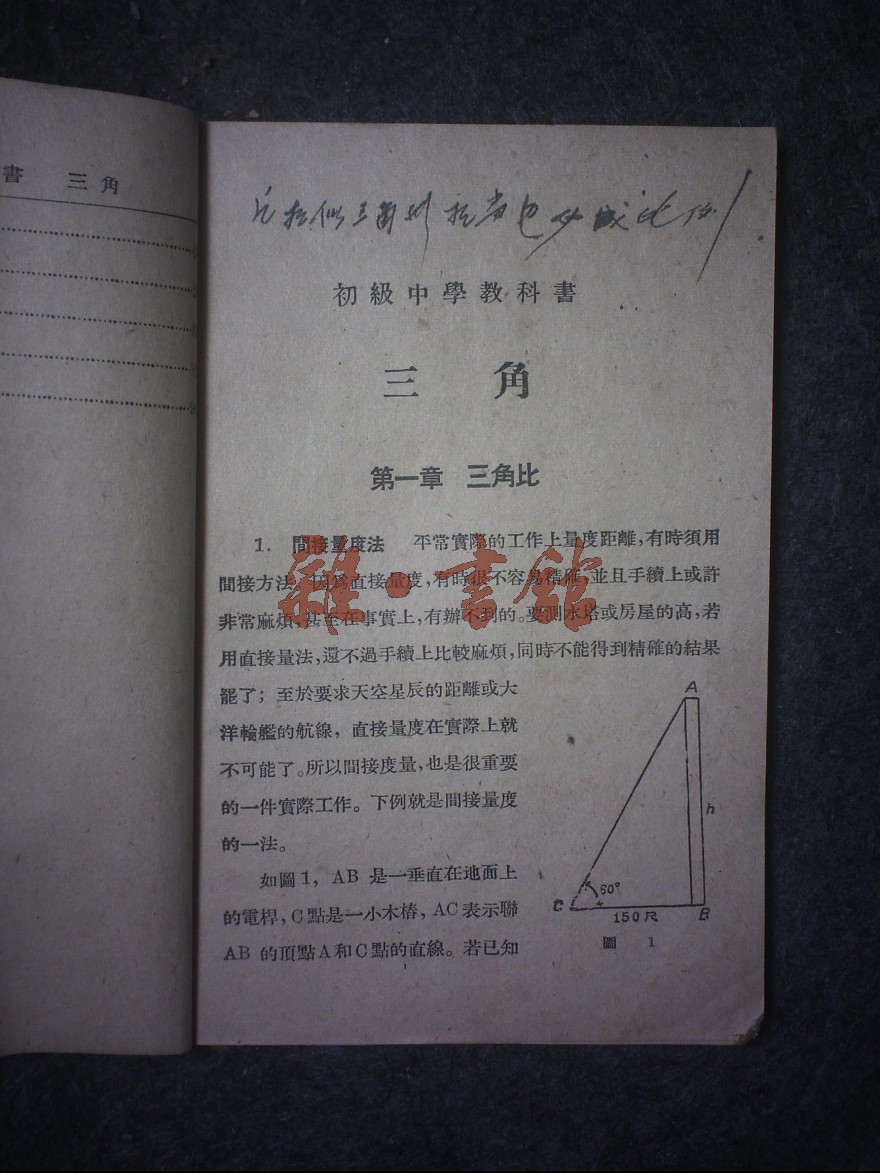 書 三角
凡相似三角形
初級中學教科書
三 角
第一章 三角比
1. 間接量度法 平常實際的工作上量度距離,有時須用
間接方法。因爲直接量度,有時很不容易精確,並且手續上或許
非常麻煩,甚至在事實上,有辦不到的。要測水塔或房屋的高,若
用直接量法,還不過手續上比較麻煩,同時不能得到精確的結果
罷了;至於要求天空星辰的距離或大
洋輪艦的航線,直接量度在實際上就
不可能了。所以間接度量,也是很重要
的一件實際工作。下例就是間接量度
的一法。
如圖1,AB 是一垂直在地面上
的電桿,C點是一小木樁,AC表示聯
AB 的頂點A和C點的直線。若已知
A
h
60°
C
150尺
B
圖 1
雜·書館